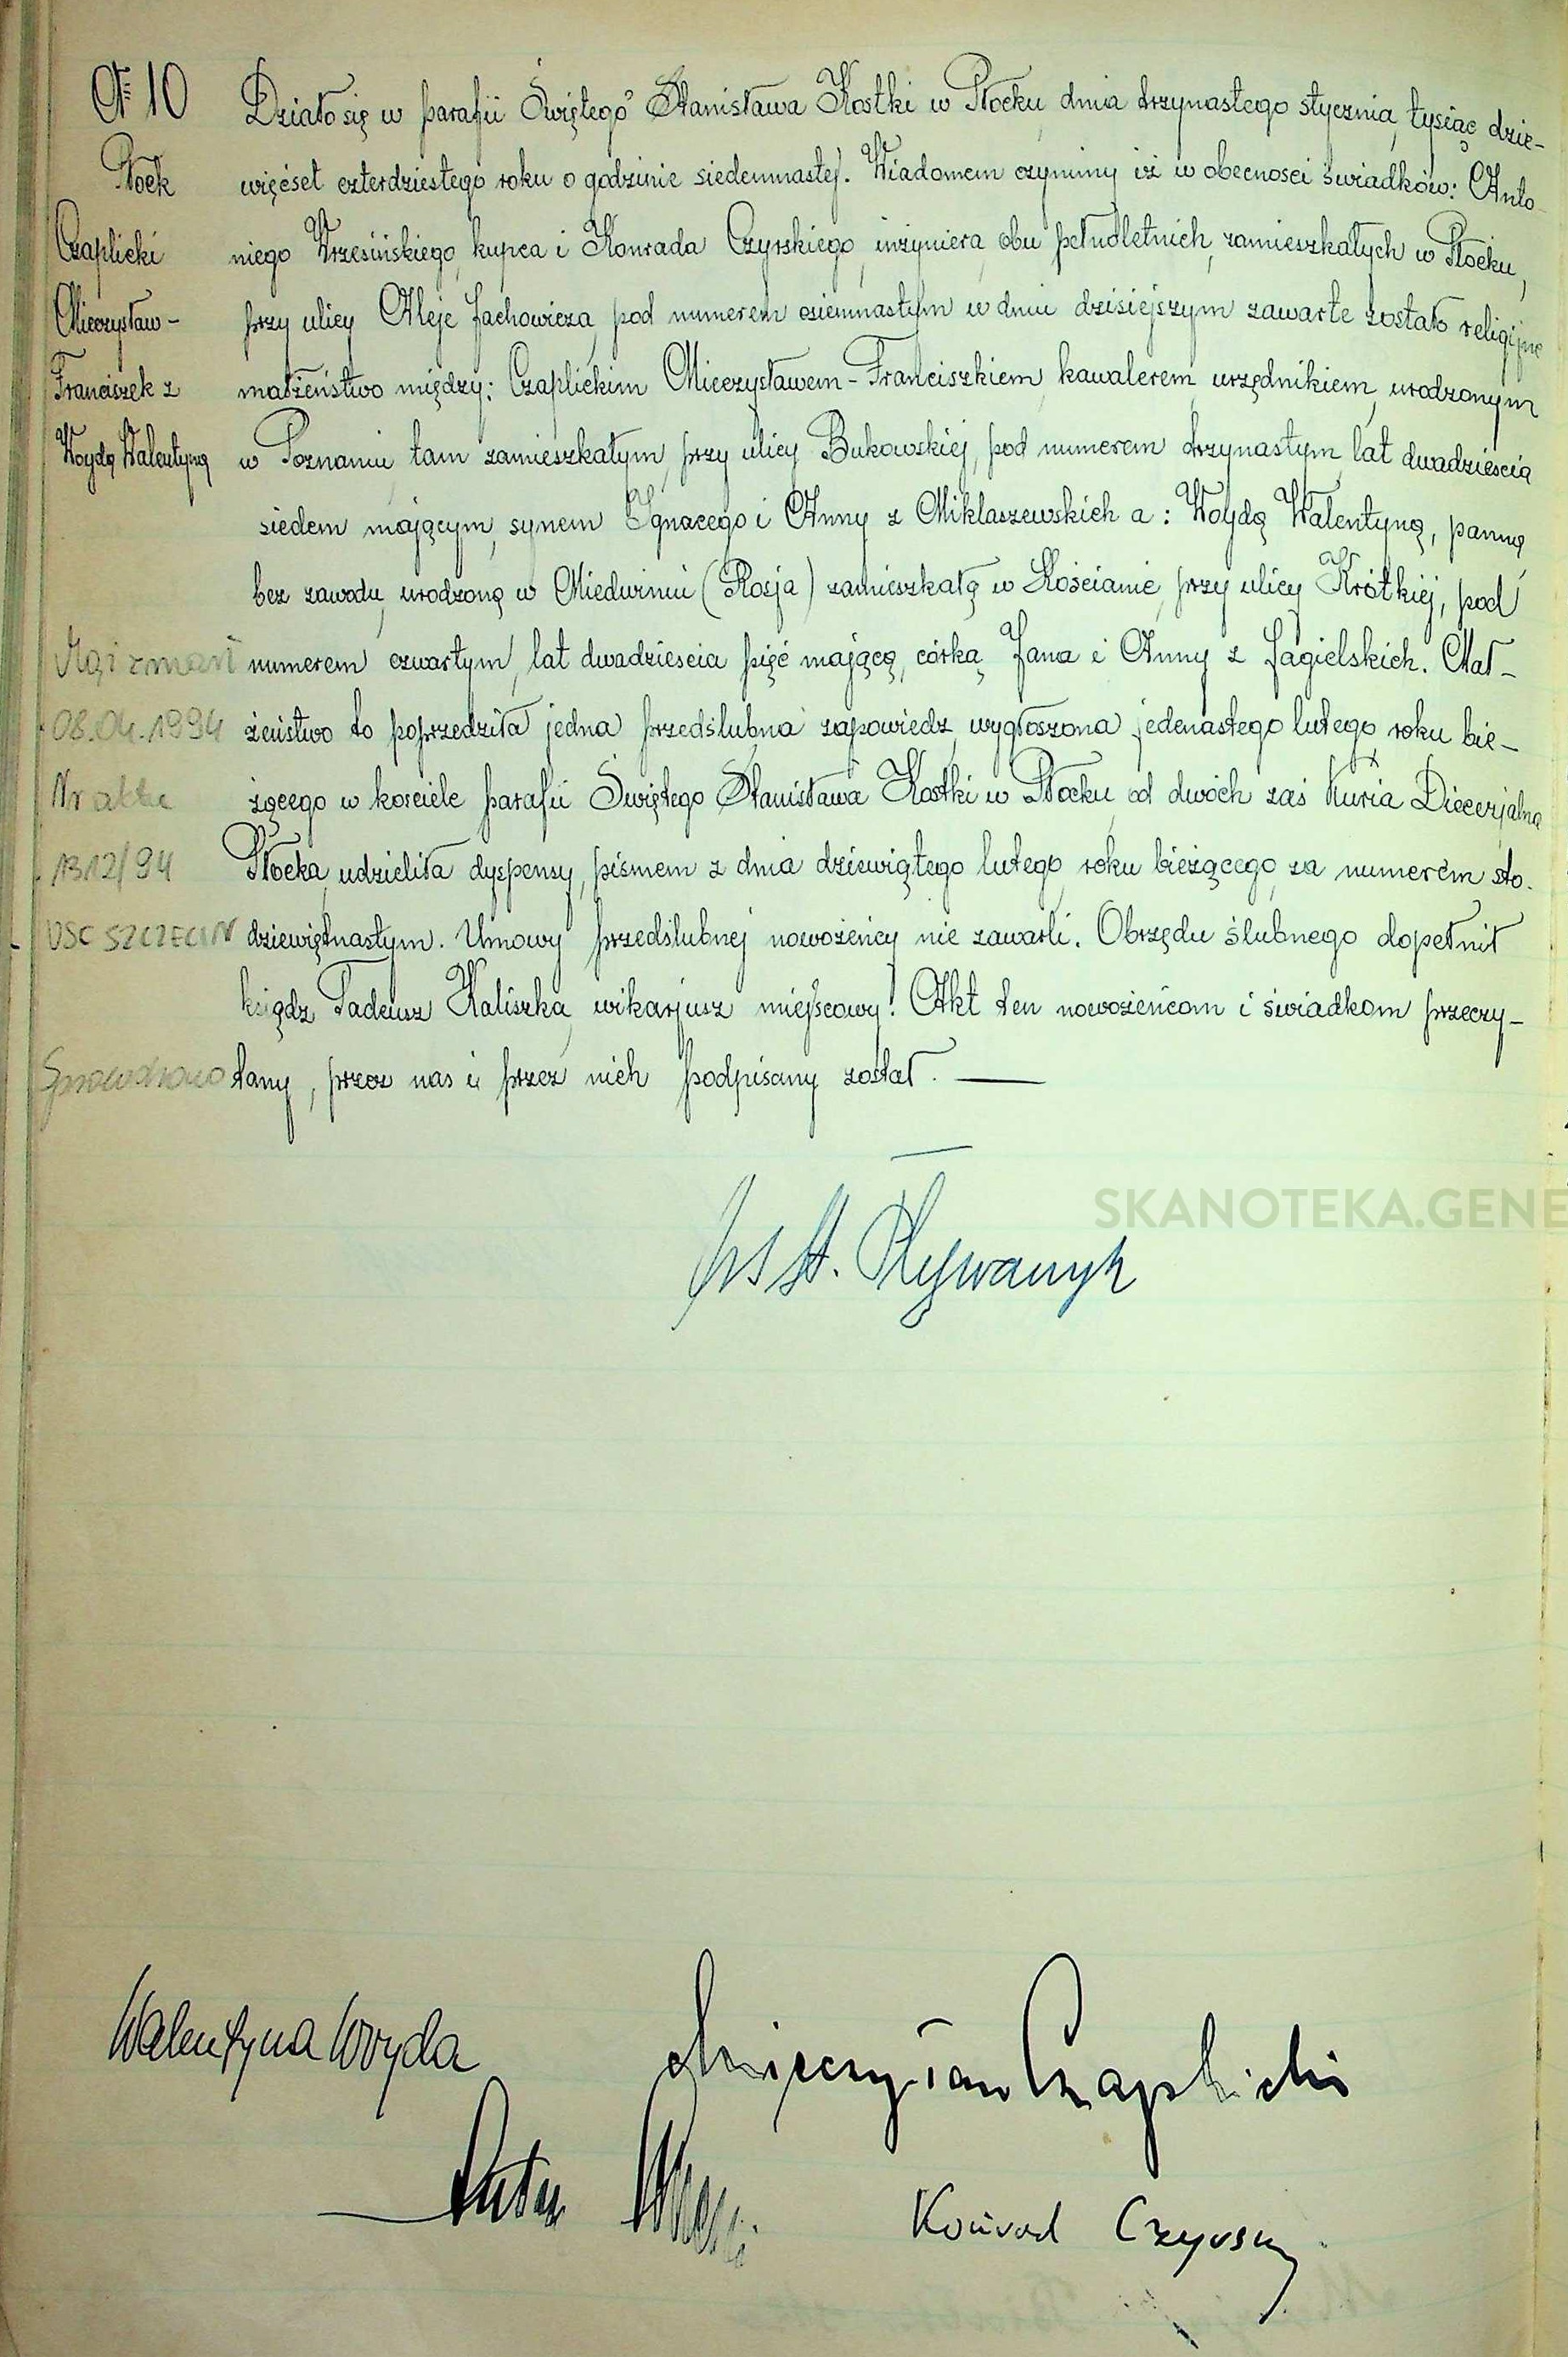 № 10
Płock
Czaplicki
Mieczysław-
Franciszek z
Woydą Walentyną
Działo się w parafii Świętego Stanisława Kostki w Płocku, dnia trzynastego stycznia, tysiąc dzie-
więćset czterdziestego roku o godzinie siedemnastej. Wiadomem czynimy iż w obecności świadków: Anto
niego Wrzesińskiego, kupca i Konrada Czyrskiego, inżyniera, obu pełnoletnich, zamieszkałych w Płocku,
przy ulicy Aleje Jachowicza, pod numerem osiemnastym w dniu dzisiejszym zawarte zostało religijne
małżeństwo między: Czaplickim Mieczysławem-Franciszkiem, kawalerem, urzędnikiem, urodzonym
w Poznaniu, tam zamieszkałym, przy ulicy Bukowskiej, pod numerem trzynastym, lat dwadzieścia
siedem mającym, synem Ignacego i Anny z Miklaszewskich a: Woydą Walentyną, panną,
bez zawodu, urodzoną w Miedwiniu (Rosja) zamieszkałą w Kościanie, przy ulicy Krótkiej, pod
numerem czwartym, lat dwadzieścia pięć mającą, córką Jana i Anny z Jagielskich. Mał-
żeństwo to poprzedziła jedna przedślubna zapowiedz, wygłoszona jedenastego lutego, roku bie-
żącego w kościele parafii Świętego Stanisława Kostki w Płocku, od dwóch zaś Kuria Diecezjalna
Płocka, udzieliła dyspensy, pismem z dnia dziewiątego lutego, roku bieżącego, za numerem sto-
dziewiętnastym. Umowy przedślubnej nowożeńcy nie zawarli. Obrzędu ślubnego dopełnił
ksiądz Tadeusz Kaliszka, wikarjusz miejscowy. Akt ten nowożeńcom i świadkom przeczy-
tany, przez nas i przez nich podpisany został.
Mąż zmarł
08.04.1994
Nr aktu
1312/94
USC SZCZECIN
Sprawdzono
SKANOTEKA.GENE
Walentyna Woyda
Mieczysław Czaplicki
Konrad Czyrski